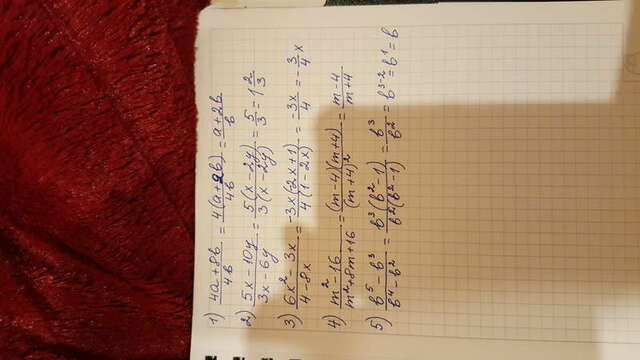 1) \frac{4a+8b}{4b} = \frac{4(a+2b)}{4b} = \frac{a+2b}{b}
2) \frac{5x-10y}{3x-6y} = \frac{5(x-2y)}{3(x-2y)} = \frac{5}{3} = 1\frac{2}{3}
3) \frac{6x^2-3x}{4-8x} = \frac{-3x(2x+1)}{4(1-2x)} = \frac{-3x}{4} = -\frac{3}{4}x
4) \frac{m^2-16}{m^2+8m+16} = \frac{(m-4)(m+4)}{(m+4)^2} = \frac{m-4}{m+4}
5) \frac{b^5-b^3}{b^4-b^2} = \frac{b^3(b^2-1)}{b^2(b^2-1)} = \frac{b^3}{b^2} = b^{3-2} = b^1 = b